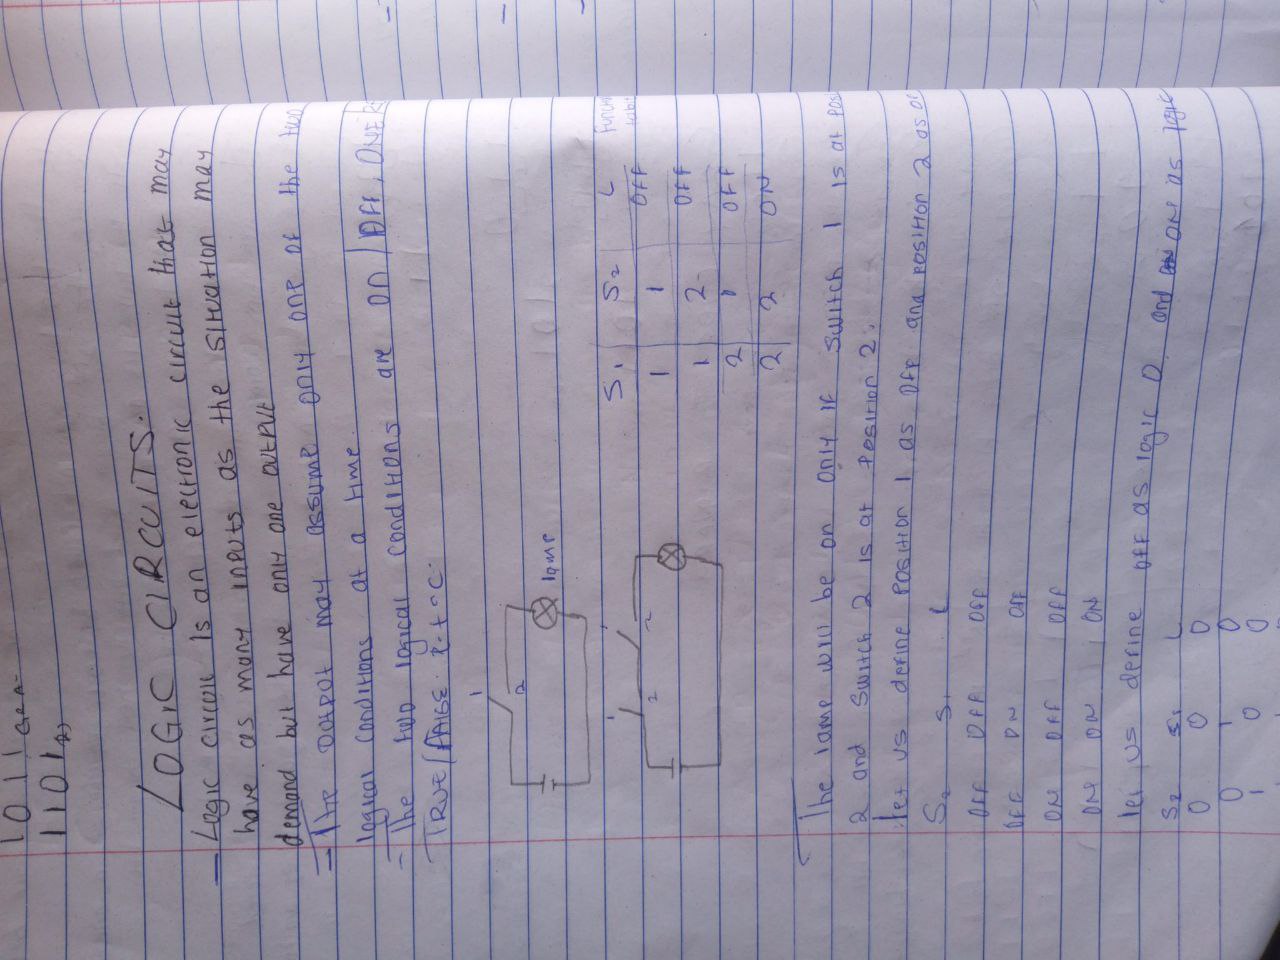 1011
1101
LOGIC CIRCUITS.
- Logic circuit is an electronic circuit that may
have as many inputs as the situation may
demand but have only one output
- The output may assume only one of the two
logical conditions at a time.
- The two logical conditions are on / OFF, ONE
TRUE/FALSE e.t.c.
1
2
lamp
1 1
2 2
S1 S2 L
1 1 OFF
1 2 OFF
2 1 OFF
2 2 ON
The lamp will be on only if switch 1 is at pos
2 and switch 2 is at position 2.
let us define position 1 as OFF and position 2 as
S2 S1 L
OFF OFF OFF
OFF ON OFF
ON OFF OFF
ON ON ON
let us define off as logic 0 and ON as logic
S2 S1 L
0 0 0
0 1 0
1 0 0